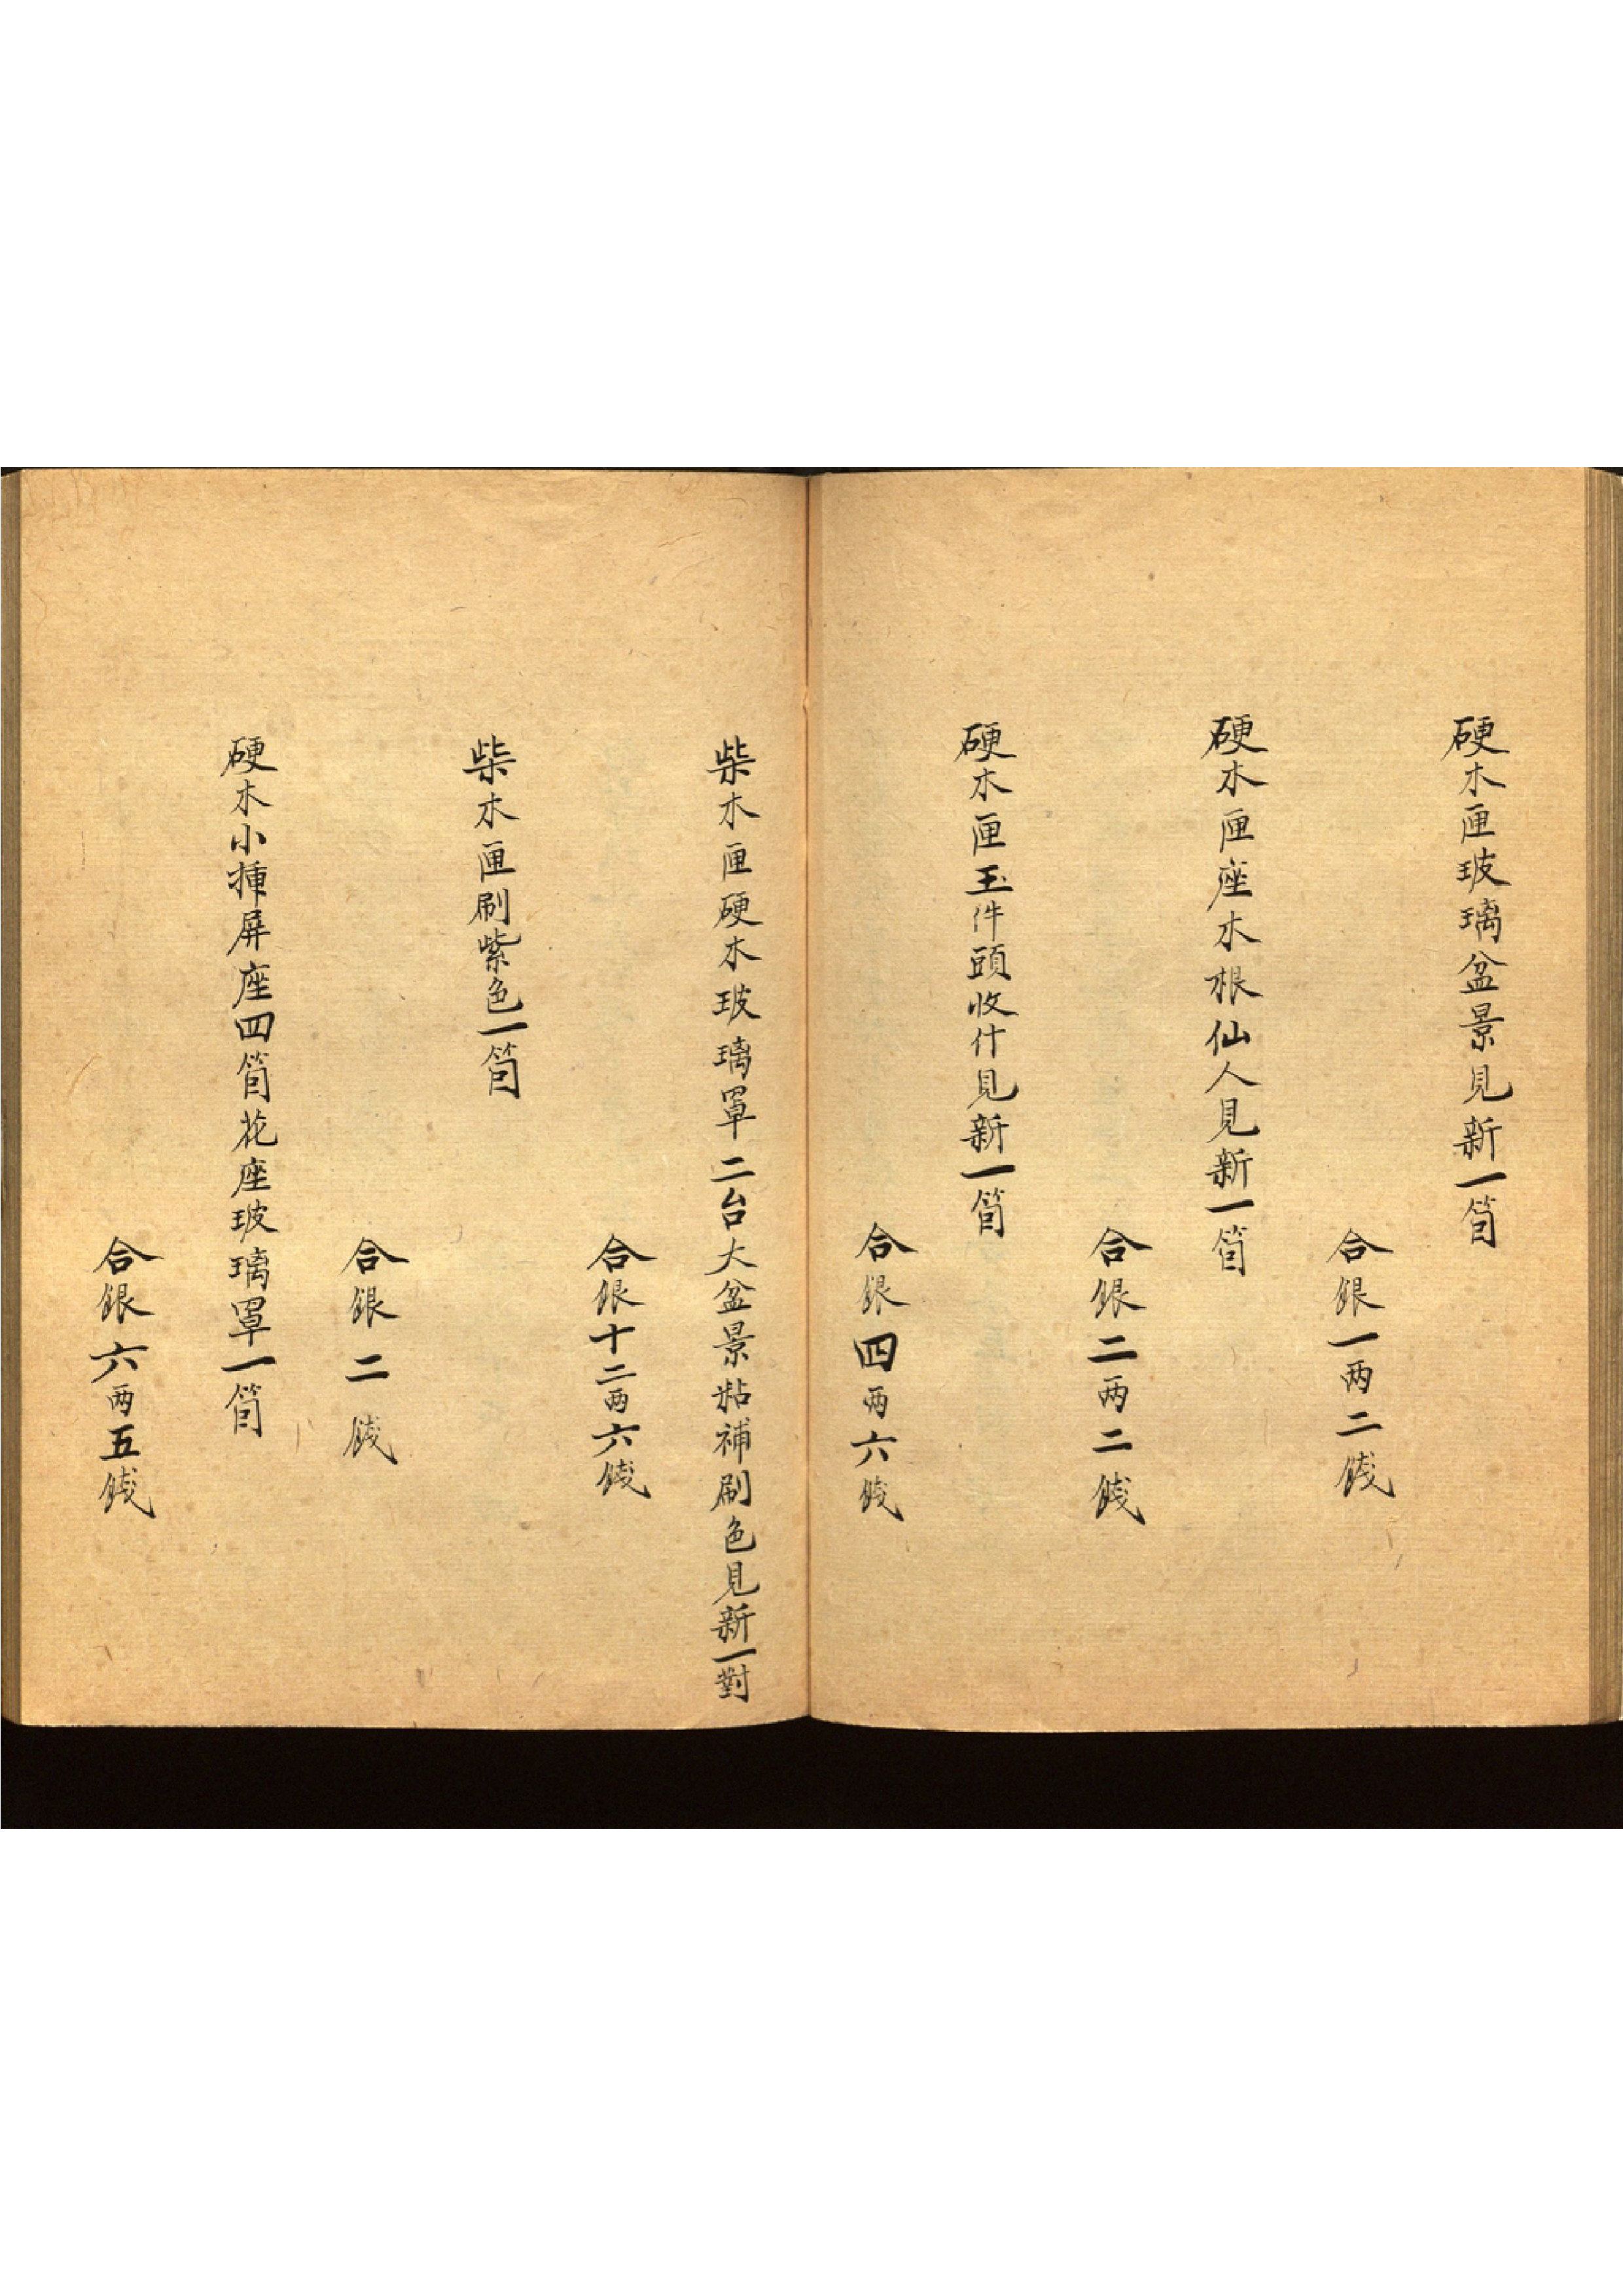 硬木匣玻璃盆景見新一箇
合銀一两二錢
硬木匣座木根仙人見新一箇
合銀二两二錢
硬木匣玉件頭收什見新一箇
合銀四两六錢
柴木匣硬木玻璃罩二台大盆景粘補刷色見新一對
合銀十二两六錢
柴木匣刷紫色一箇
合銀二錢
硬木小揷屏座四箇花座玻璃罩一箇
合銀六两五錢